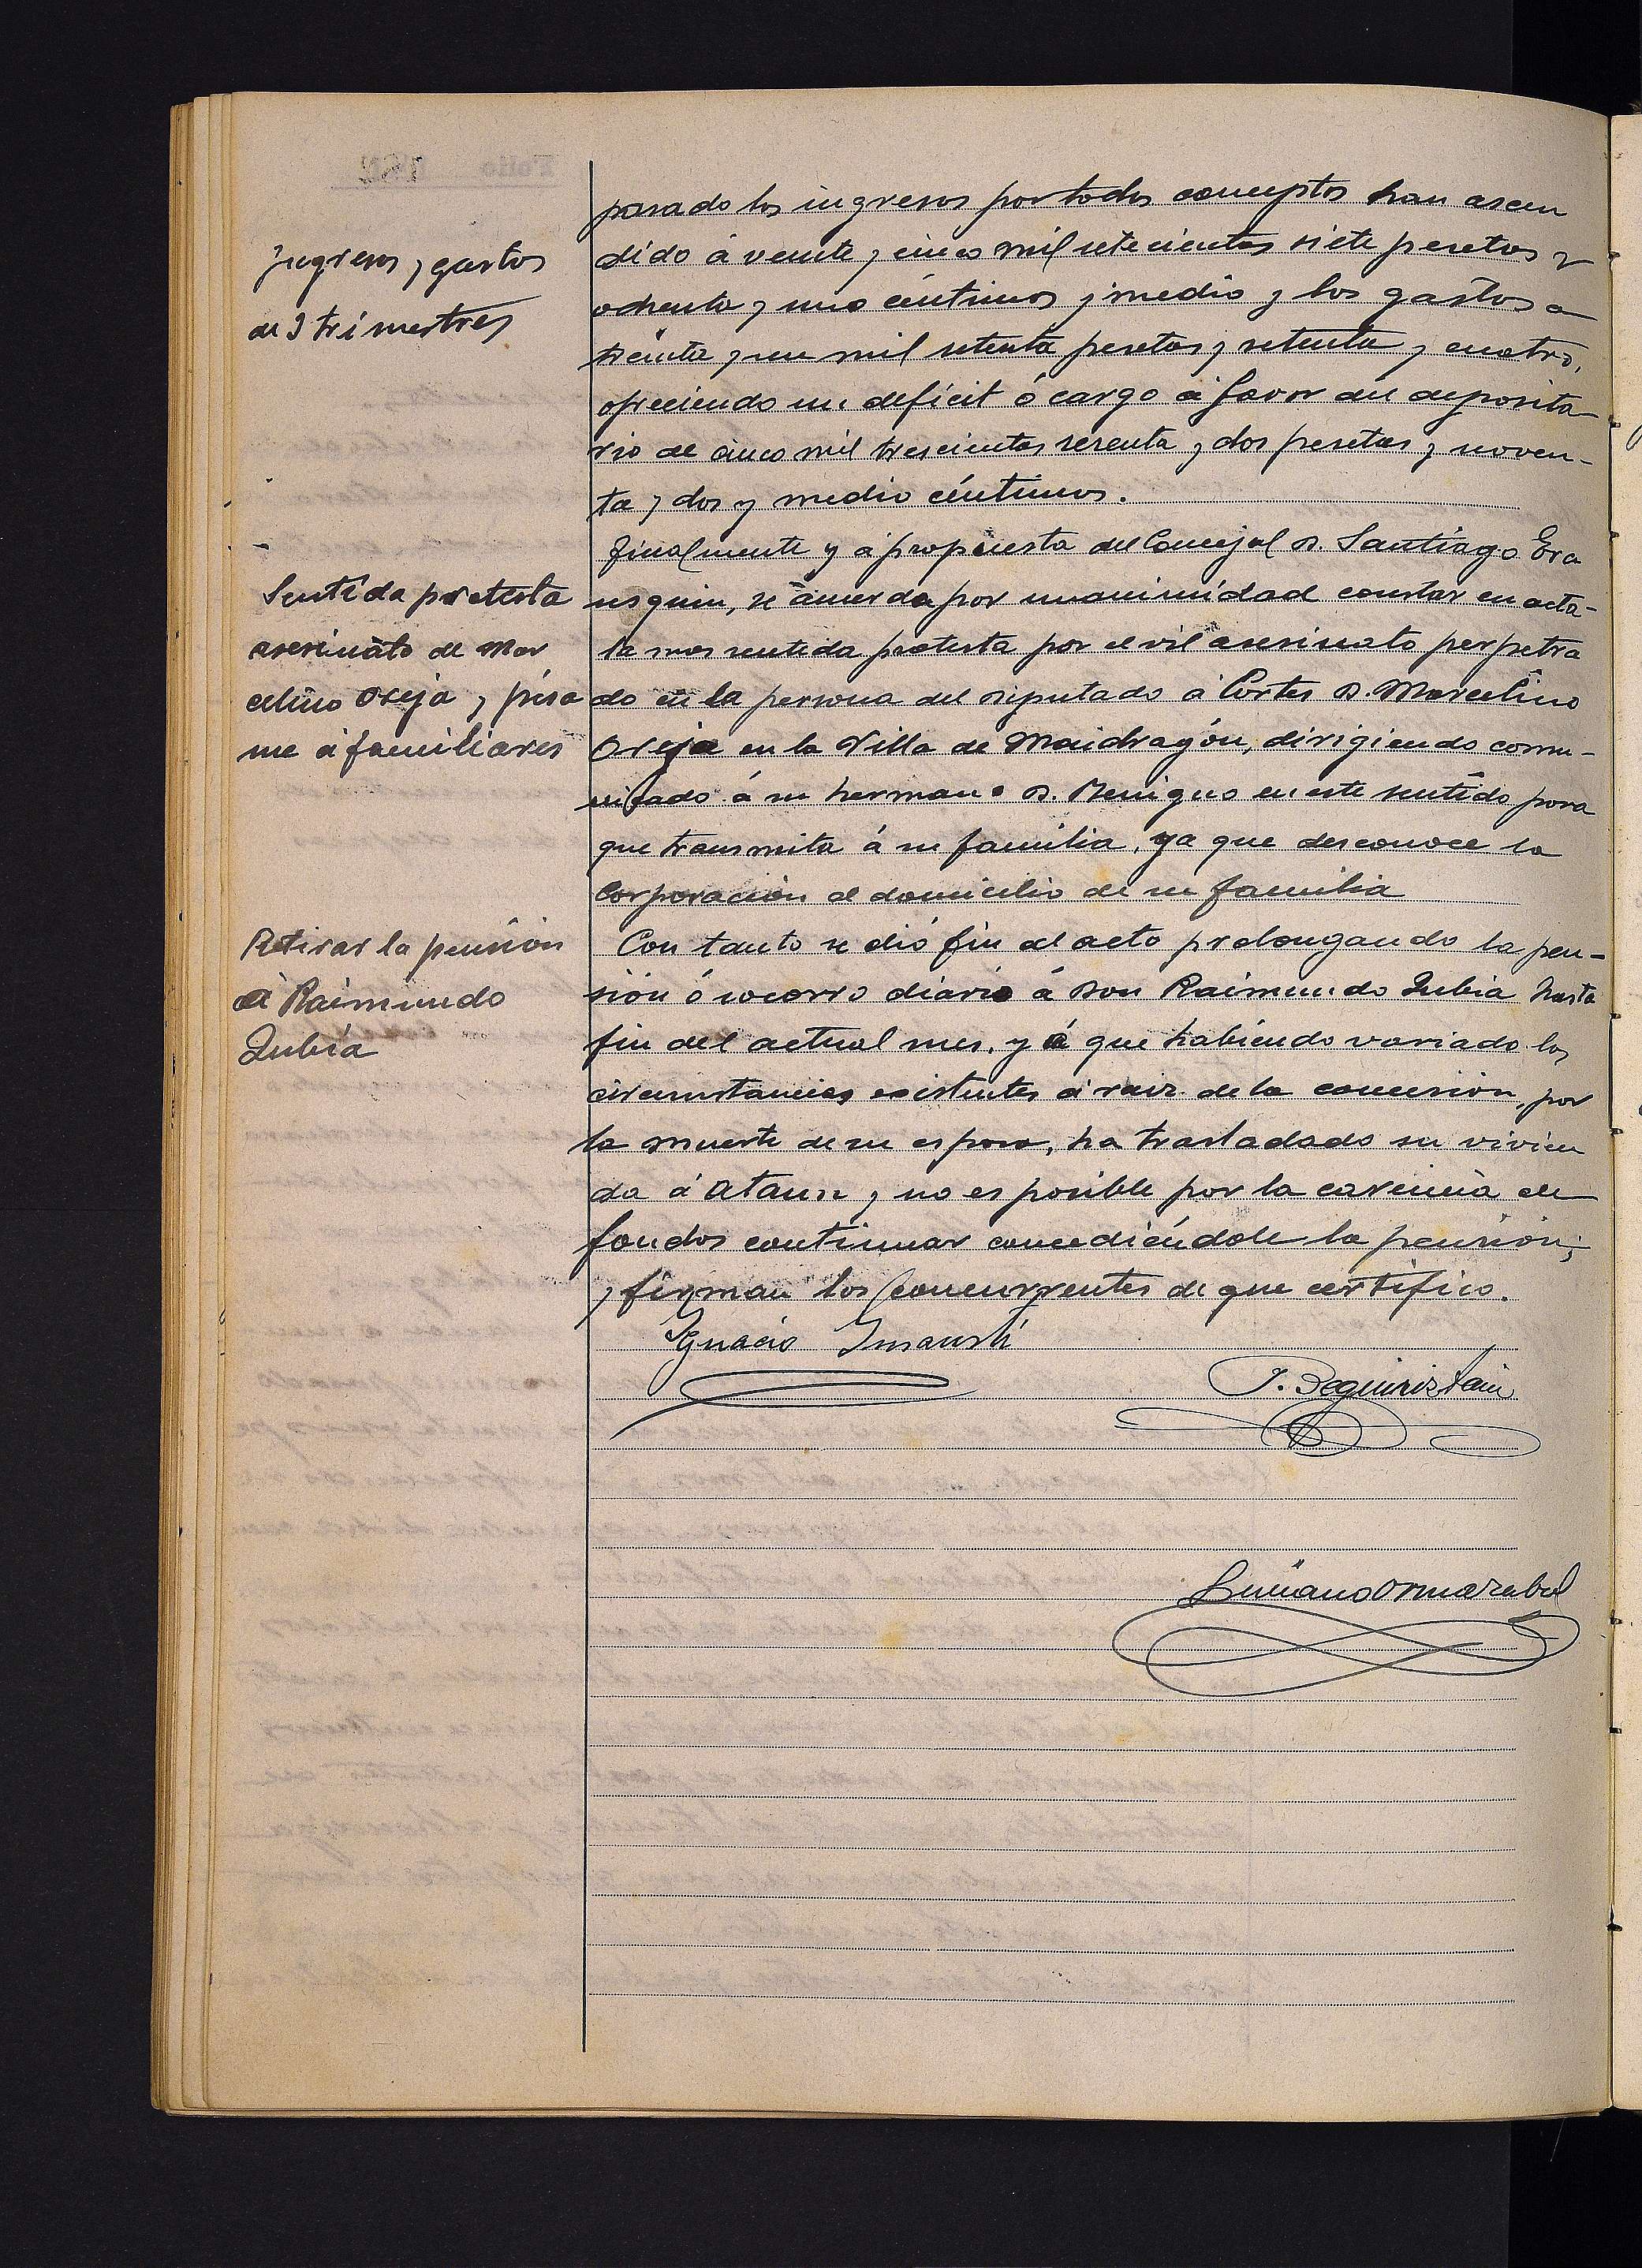 Ingresos y gastos
de 3 trimestres
pasado los ingresos por todos conceptos han ascen
dido á veinte y cinco mil setecientas siete pesetas y
ochenta y uno céntimos y medio y los gastos a
treinta y un mil setenta pesetas y setenta y cuatro,
ofreciendo un defícit ó cargo á favor del deposita-
rio de cinco mil trescientas sesenta y dos pesetas y noven-
ta y dos y medio céntimos.
Sentida protesta
asesinato de Mar
celino Oreja y pésa
me á familiares
Finalmente y á propuesta del Concejal D. Santiago Era
usquin, se acuerda por unanimidad constar en acta-
la mas sentida protesta por el vil asesinato perpetra
do en la persona del Diputado á Cortes D. Marcelino
Oreja en la Villa de Mondragón, dirigiendo comu-
nicado á su hermano D. Benigno en este sentido para
que transmita á su familia, ya que desconoce la
Corporación el domicilio de su familia
Retirar la pensión
á Raimundo
Zubía
Con tanto se dió fin al acto prolongando la pen-
sión ó socorro diario á Don Raimundo Zubia hasta
fin del actual mes, y á que habiendo variado las
circunstancias existentes á raiz de la concesión, por
la muerte de su esposa, ha trasladado su vivien
da á Ataun y no es posible por la carencia de
fondos continuar concediéndole la pensión;
y firman los concurrentes de que certifico.
Ignacio Insausti
J. Beguiristain
Luciano Ormazabal